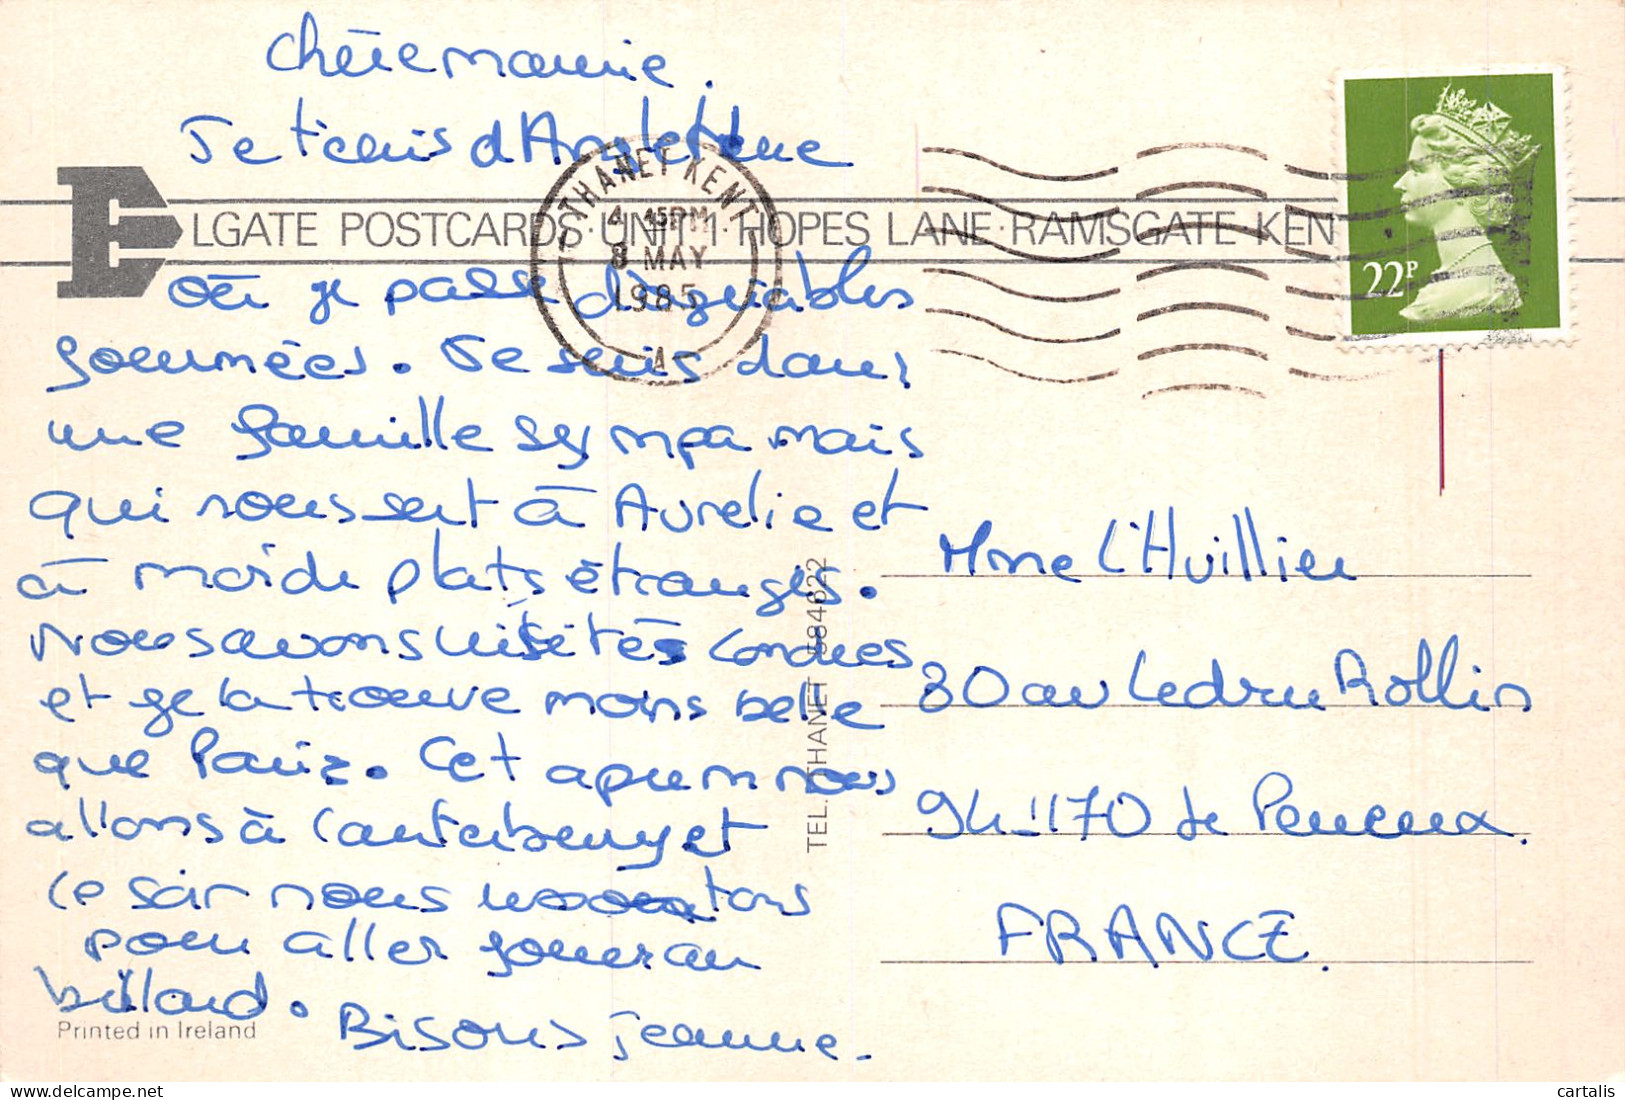 Chère mamie.
Je t'écris d'Angleterre
ELGATE POSTCARDS·UNIT 1·HOPES LANE·RAMSGATE·KENT
THANET KENT
4 45PM
8 MAY
1985
A
22P
où je passe d'agréables
journées. Je suis dans
une famille sympa mais
qui nous sert à Aurelie et
à moi de plats étranges.
Nous avons visités Londres
et je la trouve moins belle
que Paris. Cet aprem nous
allons à Canterbury et
ce soir nous sortons
pour aller jouer au
billard.
Bisous Jeanne.
Printed in Ireland
TEL. THANET 584622
Mme L'Huillier
80 av Ledru Rollin
94170 Le Perreux.
FRANCE.
cartalis